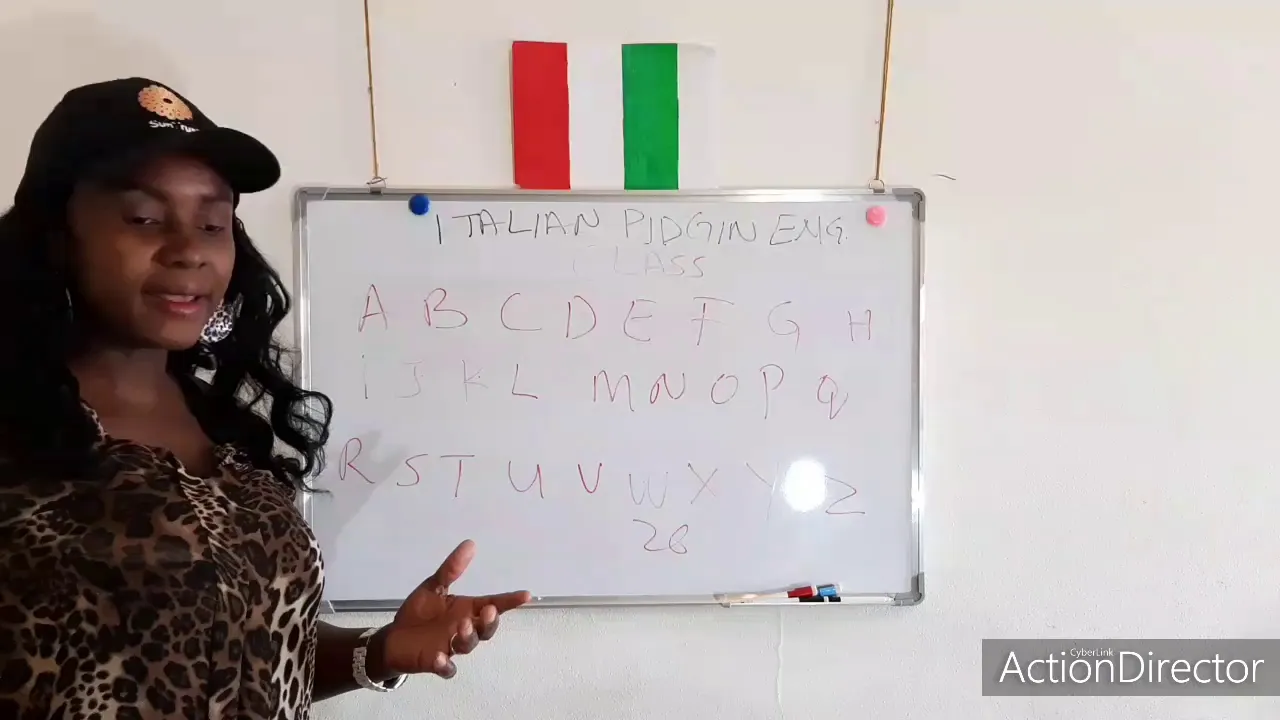 ITALIAN PIDGIN ENG.
CLASS
A B C D E F G H
I J K L M N O P Q
R S T U V W X Y Z
26
CyberLink
ActionDirector